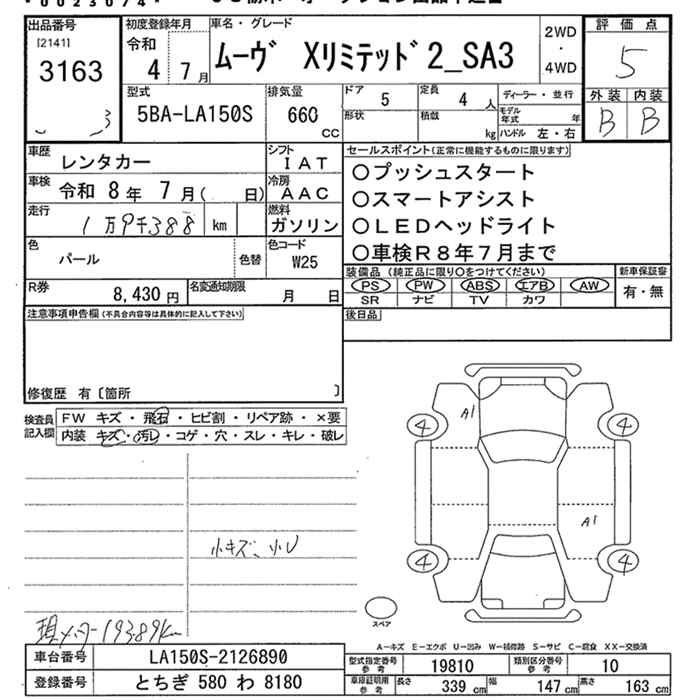 出品番号
[2141]
3163
3
初度登録年月
令和
4年 7月
車名・グレード
ムーヴ Xリミテッド2_SA3
2WD
・
4WD
評価点
5
外装 内装
B B
型式
5BA-LA150S
排気量
660
CC
ドア 5
定員 4 人
ディーラー・並行
形状
積載 kg
モデル年式 年
ハンドル 左・右
車歴 レンタカー
シフト IAT
車検 令和 8年 7月( 日)
冷房 AAC
走行 1万9千388 km
燃料 ガソリン
色 パール 色替
色コード W25
R券 8,430円
名変通知期限 月 日
セールスポイント(正常に機能するものに限ります)
○プッシュスタート
○スマートアシスト
○LEDヘッドライト
○車検R8年7月まで
装備品(純正品に限り○をつけてください)
新車保証書
PS PW ABS エアB AW
有・無
SR ナビ TV カワ
後日品
注意事項申告欄(不具合内容等は具体的に記入して下さい)
修復歴 有〔箇所 〕
検査員記入欄
FW キズ・飛石・ヒビ割・リペア跡・×要
内装 キズ・汚レ・コゲ・穴・スレ・キレ・破レ
小キズ、小U
現メーター19389km
A1
4 4
A1
4 4
スペア
A-キズ E-エクボ U-凹み W-補修跡 S-サビ C-腐食 XX-交換済
車台番号 LA150S-2126890
登録番号 とちぎ 580 わ 8180
型式指定番号参考 19810
類別区分番号参考 10
車庫証明用参考 長さ 339cm 幅 147cm 高さ 163cm